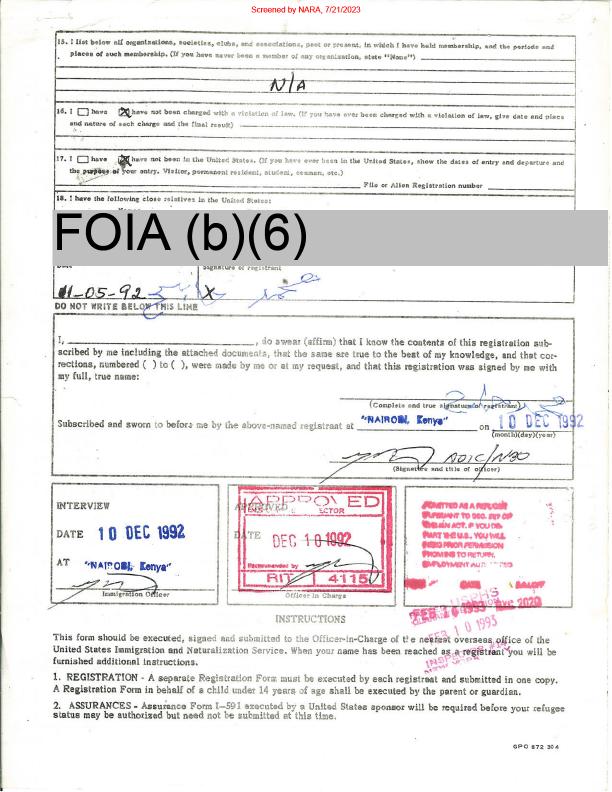 Screened by NARA, 7/21/2023
15. I list below all organizations, societies, clubs, and associations, past or present, in which I have held membership, and the periods and
places of such membership. (If you have never been a member of any organization, state "None")
N/A
16. I have have not been charged with a violation of law. (If you have ever been charged with a violation of law, give date and place
and nature of each charge and the final result)
17. I have have not been in the United States. (If you have ever been in the United States, show the dates of entry and departure and
the purpose of your entry. Visitor, permanent resident, student, seaman, etc.)
File or Alien Registration number
18. I have the following close relatives in the United States:
FOIA (b)(6)
Date Signature of registrant
11-05-92 X
DO NOT WRITE BELOW THIS LINE
I, , do swear (affirm) that I know the contents of this registration sub-
scribed by me including the attached documents, that the same are true to the best of my knowledge, and that cor-
rections, numbered ( ) to ( ), were made by me or at my request, and that this registration was signed by me with
my full, true name:
(Complete and true signature of registrant)
Subscribed and sworn to before me by the above-named registrant at "NAIROBI, Kenya" on 10 DEC 1992
(month)(day)(year)
(Signature and title of officer)
INTERVIEW
DATE 10 DEC 1992
AT "NAIROBI, Kenya"
Immigration Officer
APPROVED
DATE DEC 10 1992
Recommended by
RIT 4115
Officer in Charge
ADMITTED AS A REFUGEE
PURSUANT TO SEC.
THE U.S., YOU WILL
PRIOR PERMISSION
TO RETURN.
EMPLOYMENT
FEB 10 1993
INSTRUCTIONS
This form should be executed, signed and submitted to the Officer-in-Charge of the nearest overseas office of the
United States Immigration and Naturalization Service. When your name has been reached as a registrant you will be
furnished additional instructions.
1. REGISTRATION - A separate Registration Form must be executed by each registrant and submitted in one copy.
A Registration Form in behalf of a child under 14 years of age shall be executed by the parent or guardian.
2. ASSURANCES - Assurance Form I-591 executed by a United States sponsor will be required before your refugee
status may be authorized but need not be submitted at this time.
GPO 872 304